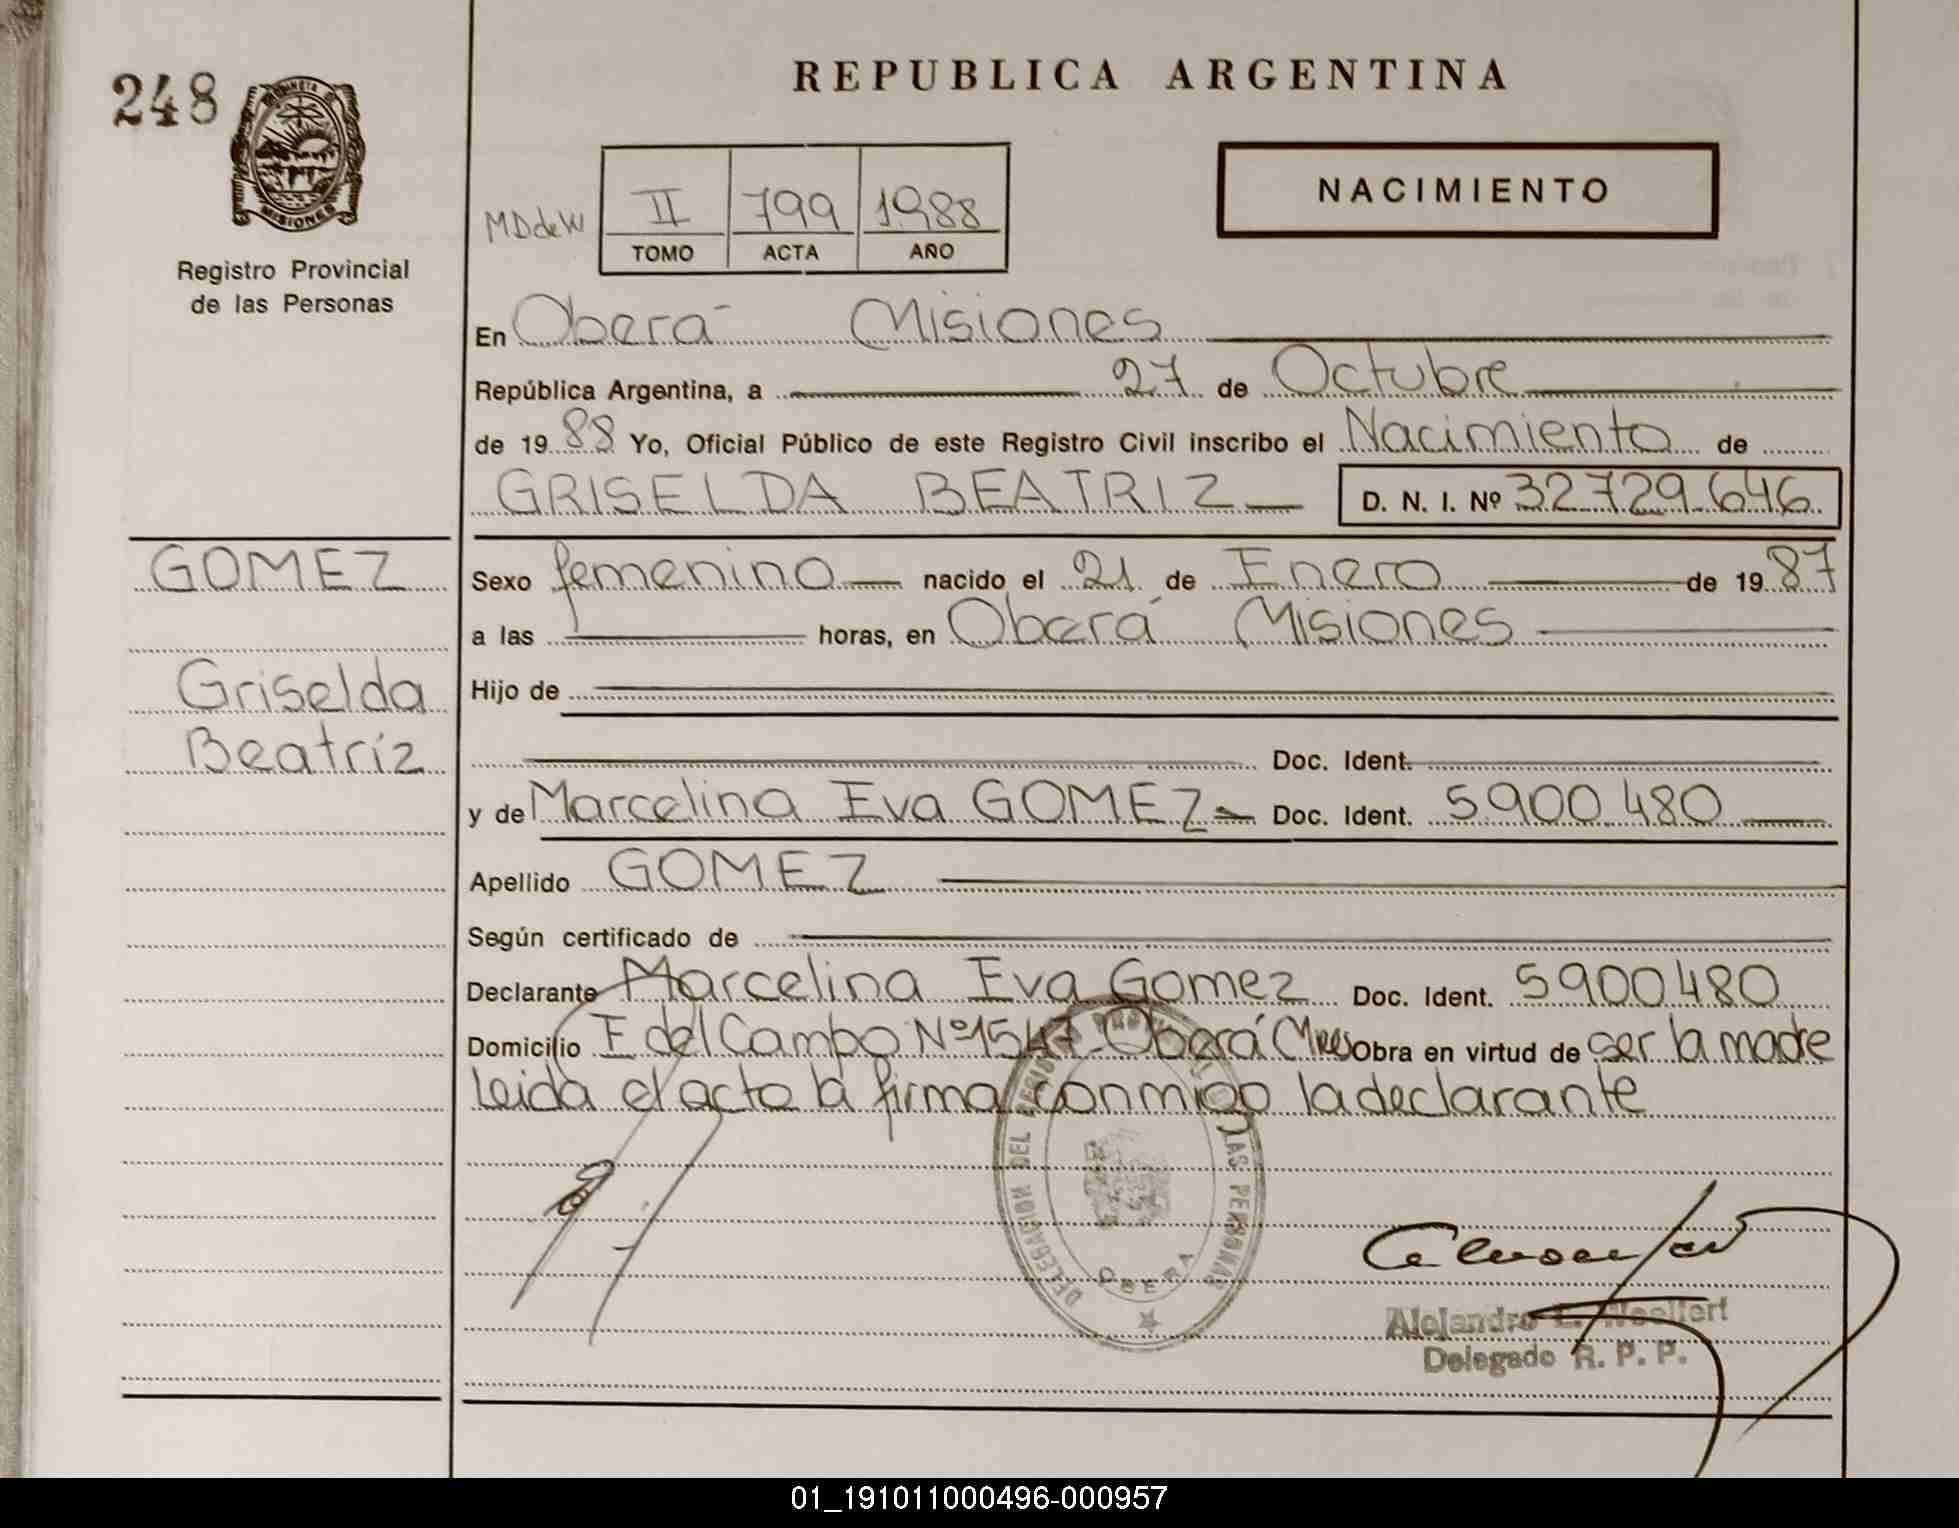 248
REPUBLICA ARGENTINA
NACIMIENTO
MISIONES
Registro Provincial
de las Personas
MDdeW
II 799 1988
TOMO ACTA AÑO
En Oberá Misiones
República Argentina, a 27 de Octubre
de 1988 Yo, Oficial Público de este Registro Civil inscribo el Nacimiento de
GRISELDA BEATRIZ D. N. I. Nº 32.729.646
GOMEZ
Griselda
Beatríz
Sexo femenino nacido el 21 de Enero de 1987
a las horas, en Oberá Misiones
Hijo de
Doc. Ident.
y de Marcelina Eva GOMEZ Doc. Ident. 5.900.480
Apellido GOMEZ
Según certificado de
Declarante Marcelina Eva Gomez Doc. Ident. 5900480
Domicilio F del Campo Nº 1547 Oberá Mnes Obra en virtud de ser la madre
leida el acto la firma conmigo la declarante
DELEGACION DEL REGISTRO LAS PERSONAS
OBERA
Alejandro E.
Delegado R. P. P.
01_191011000496-000957